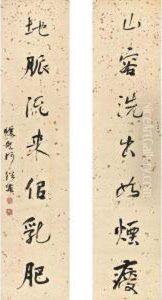 山容洗出如煙瘦
地脈流來佀乳肥